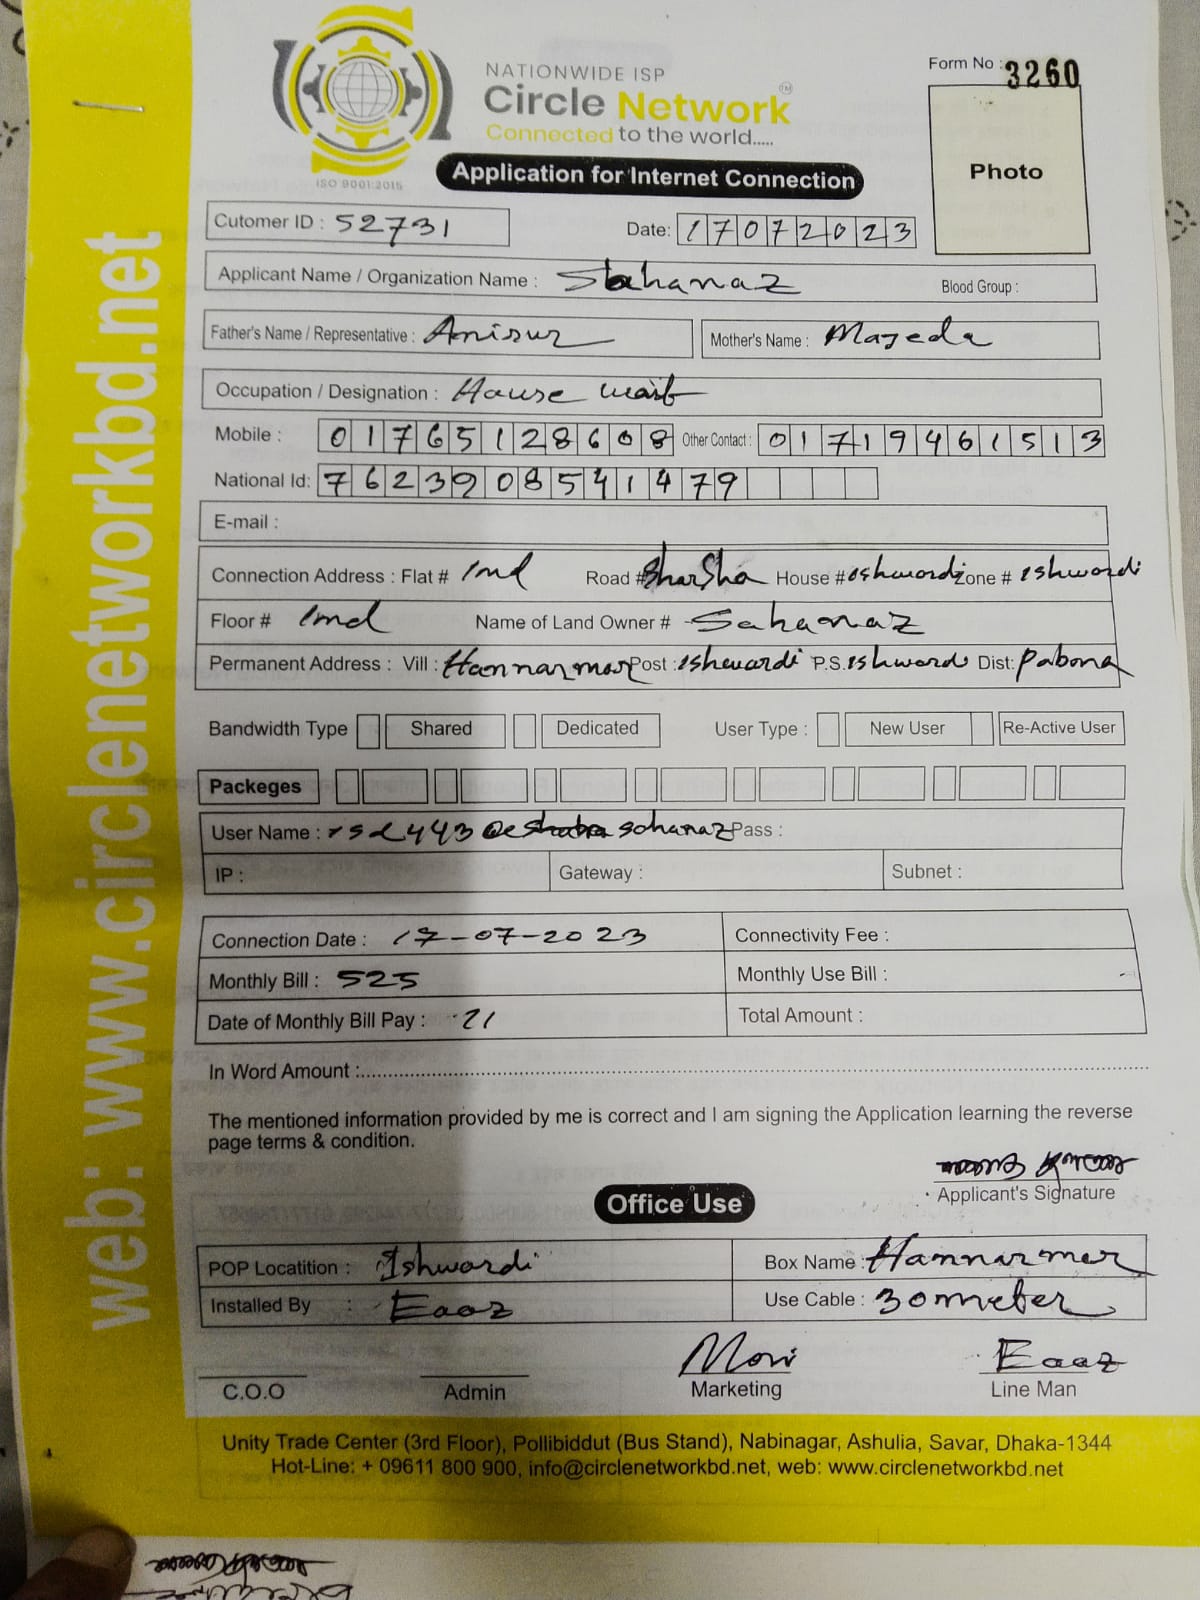 NATIONWIDE ISP
Circle Network TM
Connected to the world.....
ISO 9001:2015
Form No : 3260
Photo
Application for Internet Connection
web: www.circlenetworkbd.net
Cutomer ID : 52731 Date: 17072023
Applicant Name / Organization Name : Sahanaz Blood Group :
Father's Name / Representative : Anisur Mother's Name : Majeda
Occupation / Designation : House waif
Mobile : 01765128608 Other Contact : 01719461513
National Id: 7623908541479
E-mail :
Connection Address : Flat # 1nd Road # House # eshwardi Zone # ishwardi
Floor # 1nd Name of Land Owner # Sahanaz
Permanent Address : Vill : Hannarmor Post : ishwardi P.S. ishwardi Dist: Pabona
Bandwidth Type Shared Dedicated User Type : New User Re-Active User
Packeges
User Name : sohanaz Pass :
IP : Gateway : Subnet :
Connection Date : 17-07-2023 Connectivity Fee :
Monthly Bill : 525 Monthly Use Bill :
Date of Monthly Bill Pay : 21 Total Amount :
In Word Amount :
The mentioned information provided by me is correct and I am signing the Application learning the reverse
page terms & condition.
Applicant's Signature
Office Use
POP Locatition : Ishwardi Box Name : Hannarmor
Installed By : Eaaz Use Cable : 30 meter
Moni Eaaz
C.O.O Admin Marketing Line Man
Unity Trade Center (3rd Floor), Pollibiddut (Bus Stand), Nabinagar, Ashulia, Savar, Dhaka-1344
Hot-Line: + 09611 800 900, info@circlenetworkbd.net, web: www.circlenetworkbd.net